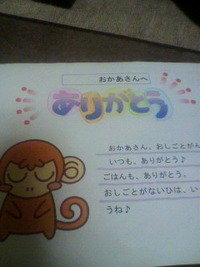 おかあさんへ
ありがとう
おかあさん、おしごとがん
いつも、ありがとう♪
ごはんも、ありがとう。
おしごとがないひは、い
うね♪